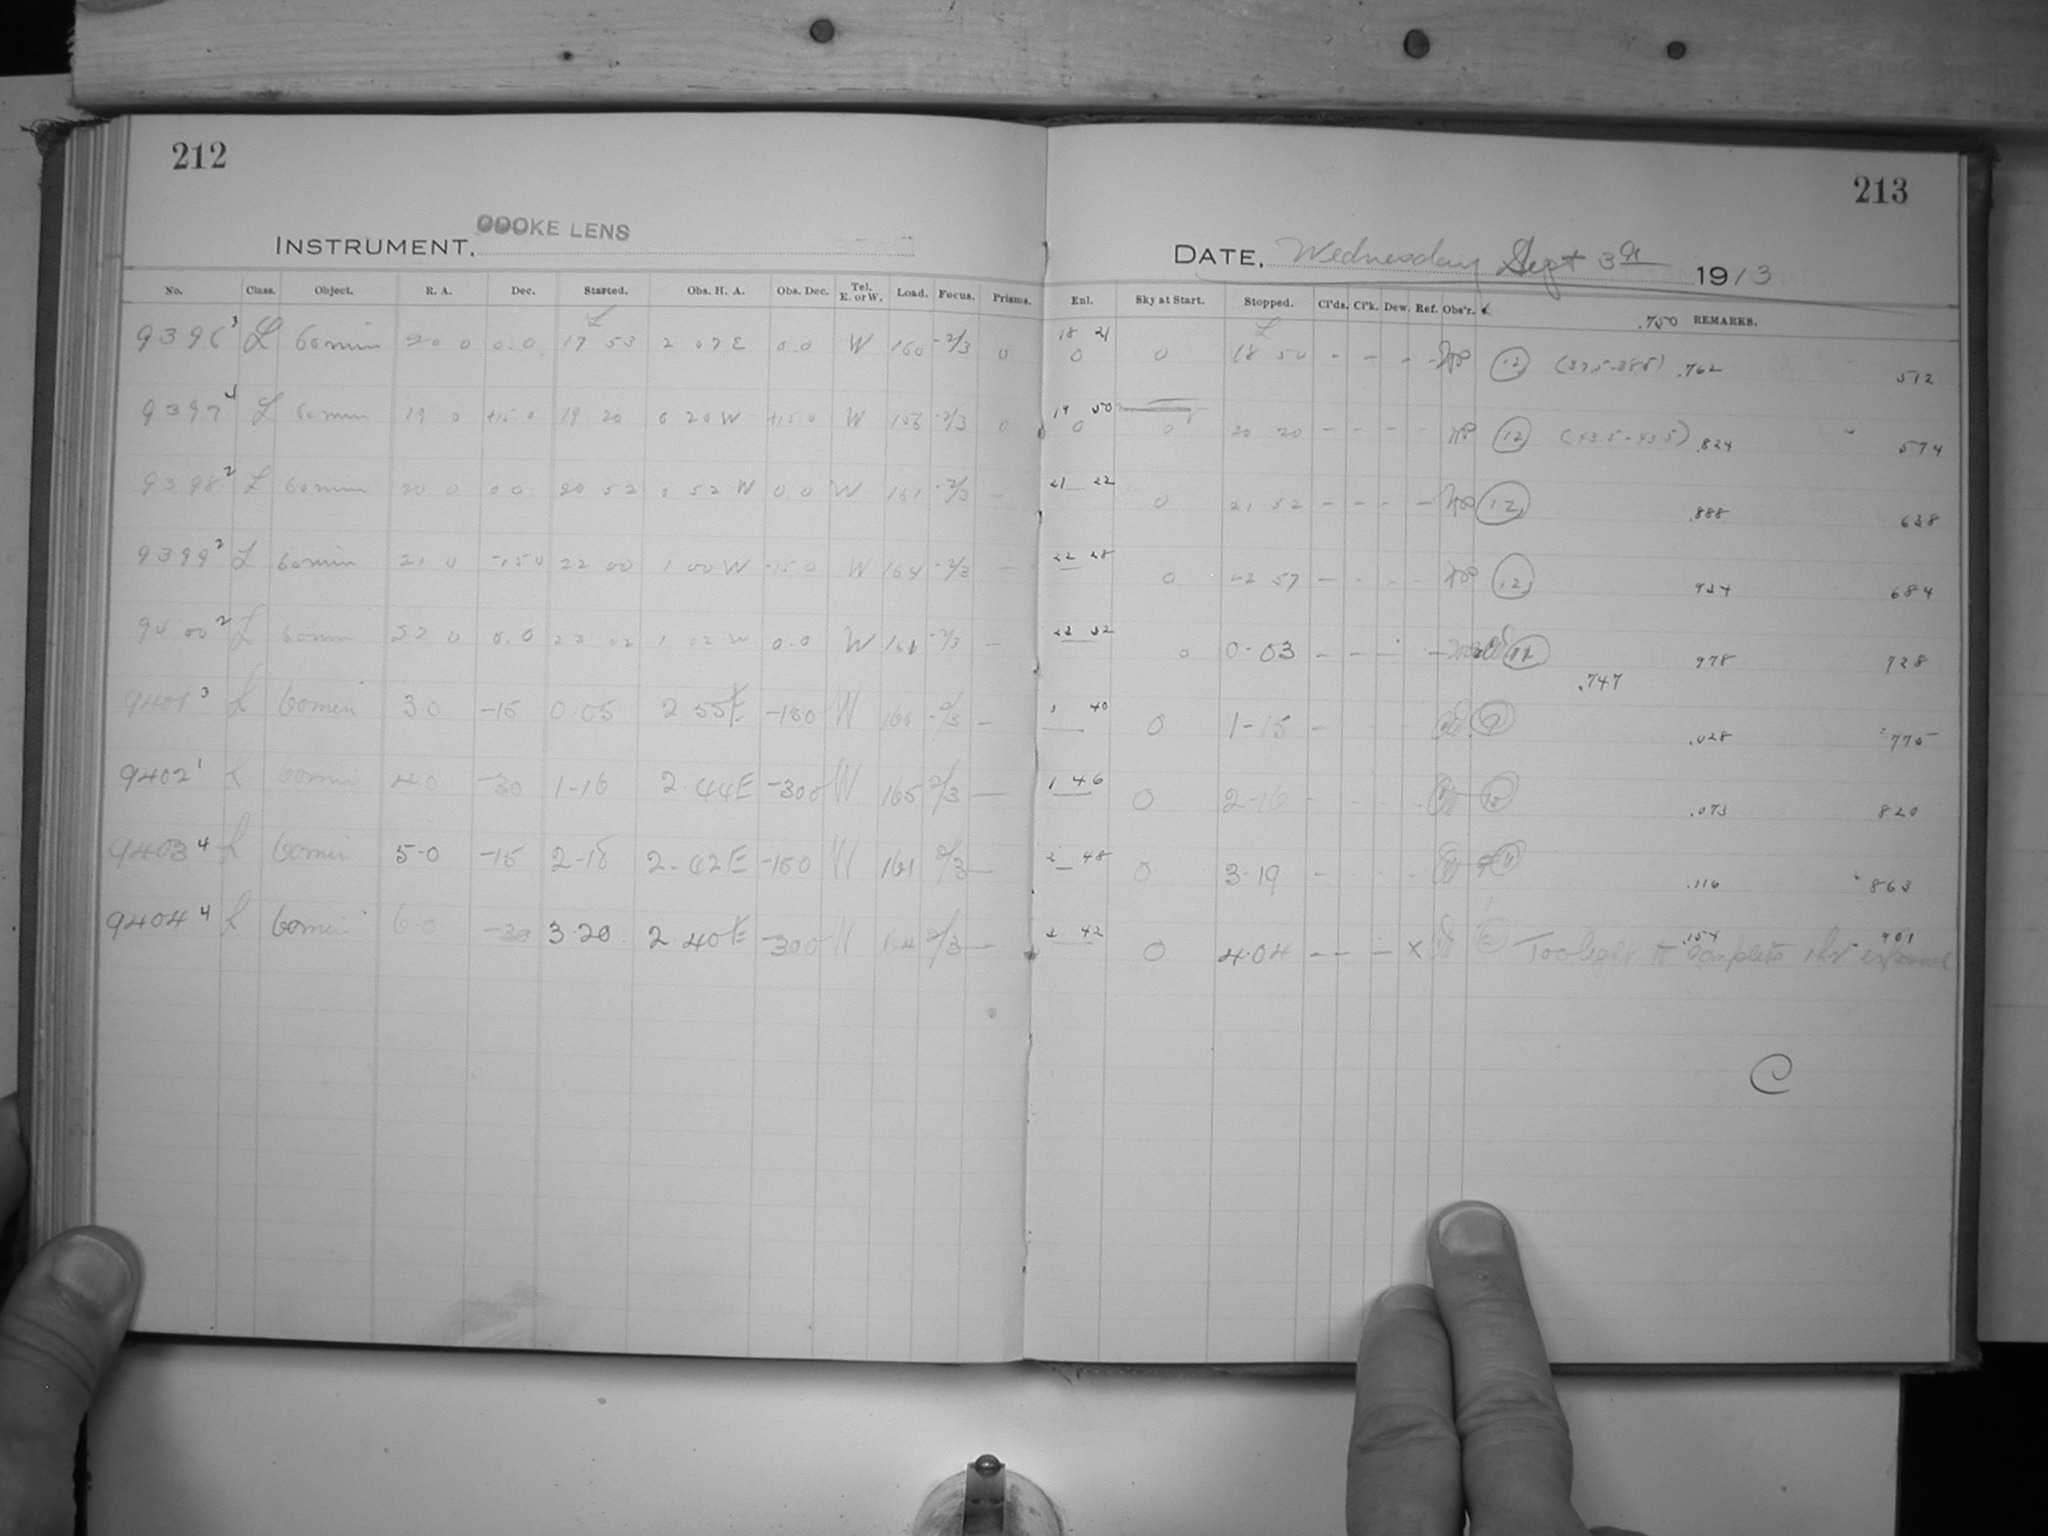 212
213
INSTRUMENT, COOKE LENS
DATE, Wednesday Sept 3rd 1913
No. Class. Object. R. A. Dec. Started. Obs. H. A. Obs. Dec. Tel. E. or W. Load. Focus. Prisms. Enl. Sky at Start. Stopped. Cl'ds. Cl'k. Dew. Ref. Obs'r. .750 REMARKS.
9396 3 L 60 min 20 0 0.0 17 53 2 07 E 0.0 W 160 -2/3 0 18 21 0 0 18 50 - - - - 12 (37.5-38.5) .762 512
9397 4 L 60 min 19 0 +15 0 19 20 0 20 W +15 0 W 156 -2/3 0 19 50 0 0 20 20 - - - - 12 (43.5-43.5) .824 574
9398 2 L 60 min 20 0 0 0 20 52 0 52 W 0 0 W 161 -2/3 - 21 22 0 21 52 - - - - 12 .888 638
9399 2 L 60 min 21 0 -15 0 22 00 1 00 W -15 0 W 164 -2/3 - 22 28 0 22 57 - - - - 12 934 684
9400 2 L 60 min 22 0 0.0 23 02 1 02 W 0.0 W 161 -2/3 - 23 32 0 0-03 - - - - 12 978 728
.747
9401 3 L 60 min 3.0 -15 0.05 2 55 E -150 W -2/3 - 40 0 1-15 - .028 775
9402 1 L 60 min 4.0 -30 1-16 2.44 E -300 W 165 2/3 - 1 46 0 2-16 - - - - .073 820
9403 4 L 60 min 5.0 -15 2-18 2-42 E -150 W 161 2/3 - 2 48 0 3-19 - - - - .116 863
9404 4 L 60 min 6.0 -30 3.20 2.40 E -300 W 164 2/3 - 3 42 0 4.04 - - - x .154 901 Too light to complete 1 hr exposure
C